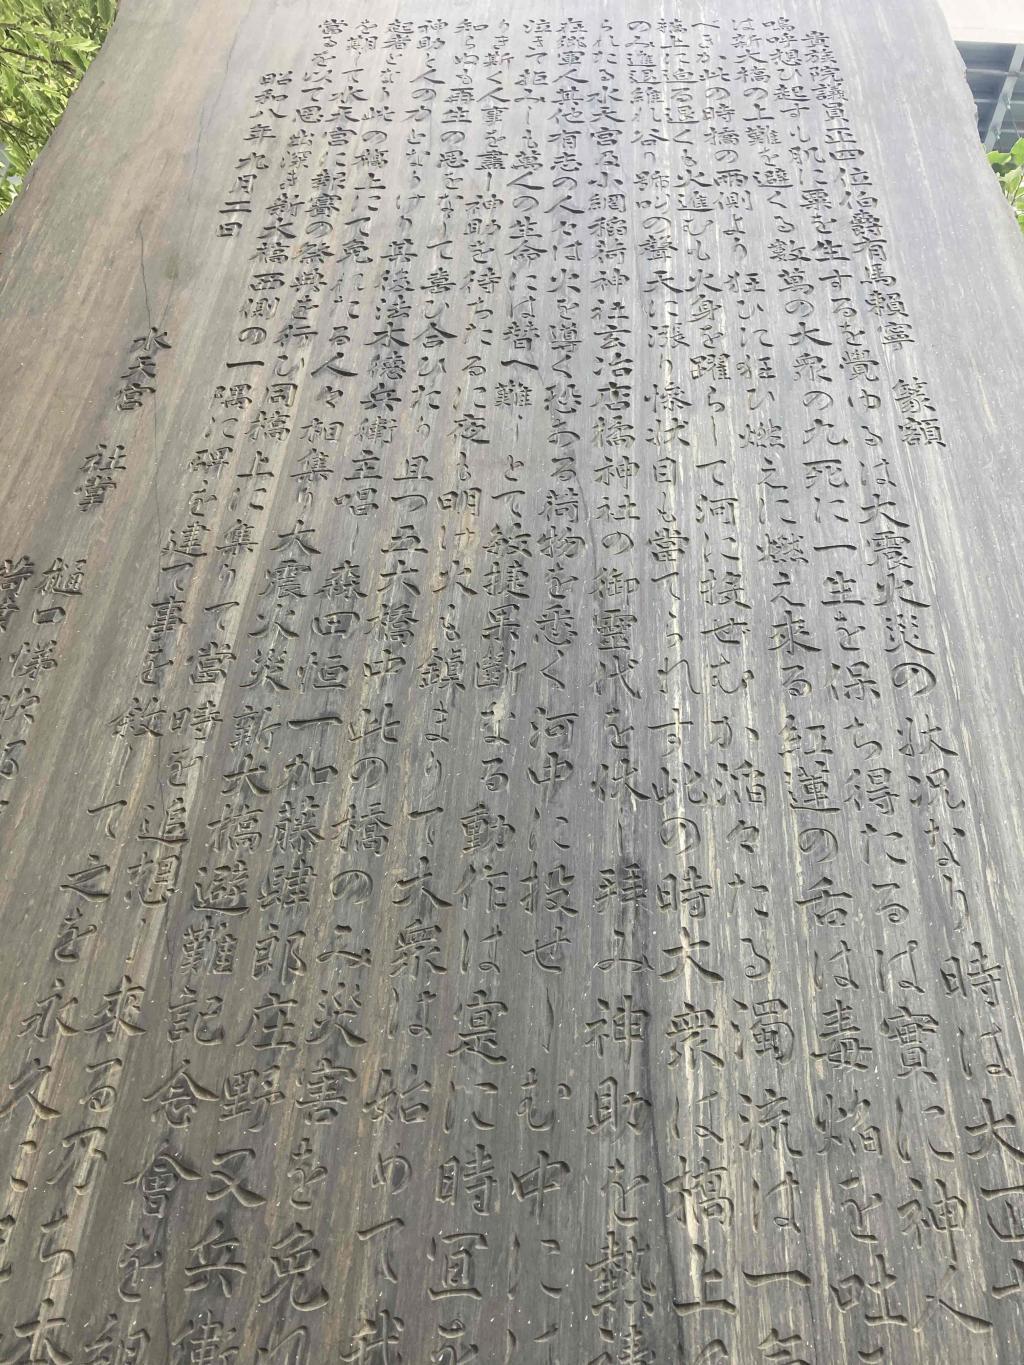 貴族院議員正四位伯爵有馬賴寧 篆額
嗚呼想ひ起すも肌に粟を生するを覺ゆるは大震火災の狀況なり時は大正
は新大橋の上難を避くる數萬の大衆の九死に一生を保ち得たるは實に神人
べきか此の時橋の兩側より狂ひに狂ひ燃えに燃え來る紅蓮の舌は毒焰を吐
橋上に迫る退くも火進むも火身を躍らして河に投ぜむか滔々たる濁流は一
のみ進退維れ谷り號叫の聲天に漲り慘狀目も當てられす此の時大衆は橋上
られたる水天宮及小網稲荷神社玄冶店橘神社の御靈代を休し拜み神助を熱
在鄕軍人其他有志の人々は火を導く恐ある荷物を悉く河中に投せしむ中に
泣きて拒みしも萬人の生命には替へ難しとて敏捷果斷なる動作は寔に時宜
りき斯く人事を盡し神助を待ちたるに夜も明け火も鎭まりて大衆は始めて我
知らぬも再生の思をなして喜び合ひたり且つ五大橋中此の橋のみ災害を免れ
神助と人の力となりけり其後法木德兵衛主唱し森田恒一加藤肆郎庄野又兵衛
起者となり此の橋上にて免れたる人々相集り大震火災新大橋避難記念會を
を期して水天宮に報賽の祭典を行ひ同橋上に集りて當時を追想し來る乃ち本
當るを以て思出深き新大橋西側の一隅に碑を建て事を敘して之を永久に
昭和八年九月二日
水天宮 社掌
樋口悌次郎